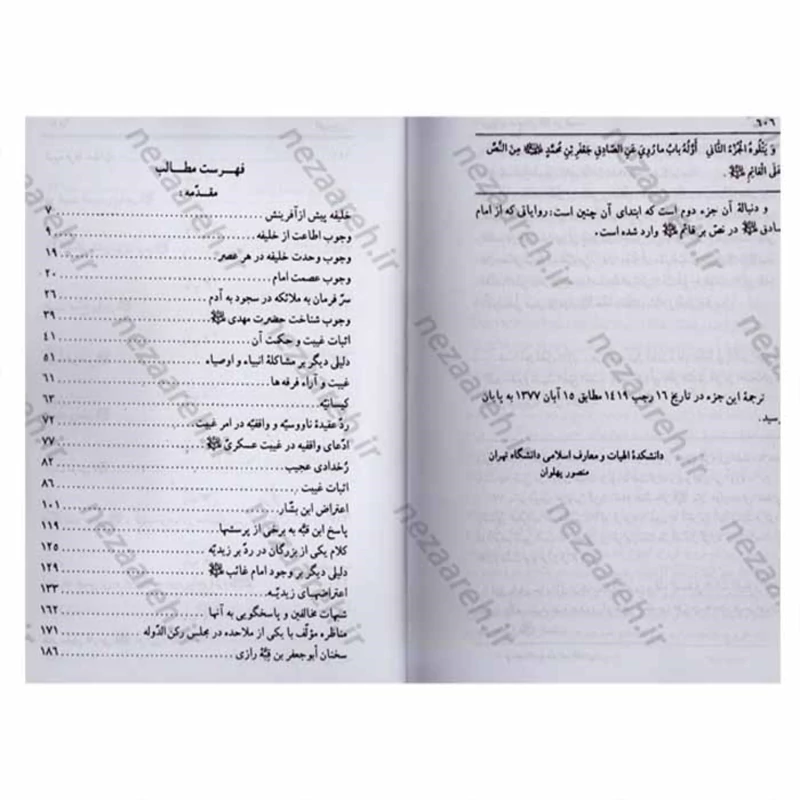 ٦٠٦
وَ يَتْلُوهُ الْجُزْءُ الثَّانِي أَوَّلُهُ بَابُ مَا رُوِيَ عَنِ الصَّادِقِ جَعْفَرِ بْنِ مُحَمَّدٍ مِنَ النَّصِّ
عَلَى الْقَائِمِ
و دنبالهٔ آن جزء دوم است که ابتدای آن چنین است: روایاتی که از امام
صادق در نصّ بر قائم وارد شده است.
ترجمهٔ این جزء در تاریخ ۱٦ رجب ۱٤۱۹ مطابق ۱٥ آبان ۱۳۷۷ به پایان
رسید.
دانشکدهٔ الهیات و معارف اسلامی دانشگاه تهران
منصور پهلوان
فهرست مطالب
مقدّمه:
خلیفه پیش از آفرینش ۷
وجوب اطاعت از خلیفه ۹
وجوب وحدت خلیفه در هر عصر ۱۹
وجوب عصمت امام ۲۰
سرّ فرمان به ملائکه در سجود به آدم ۲٦
وجوب شناخت حضرت مهدی ۳۹
اثبات غیبت و حکمت آن ٤۱
دلیلی دیگر بر مشاکلهٔ انبیاء و اوصیاء ٥۱
غیبت و آراء فرقه‌ها ٦۱
کیسانیّه ٦۳
ردّ عقیدهٔ ناووسیّه و واقفیّه در امر غیبت ۷۲
ادّعای واقفیه در غیبت عسکری ۷۷
رُخدادی عجیب ۸۲
اثبات غیبت ۸٦
اعتراض ابن بشّار ۱۰۱
پاسخ ابن قبّه به برخی از پرسشها ۱۱۹
کلام یکی از بزرگان در ردّ بر زیدیّه ۱۲٥
دلیلی دیگر بر وجود امام غائب ۱۲۹
اعتراضهای زیدیّه ۱۳۳
شبهات مخالفین و پاسخگویی به آنها ۱٦۲
مناظره مؤلّف با یکی از ملاحده در مجلس رکن الدّوله ۱۷۱
سخنان أبوجعفر بن قبّهٔ رازی ۱۸٦
nezaareh.ir